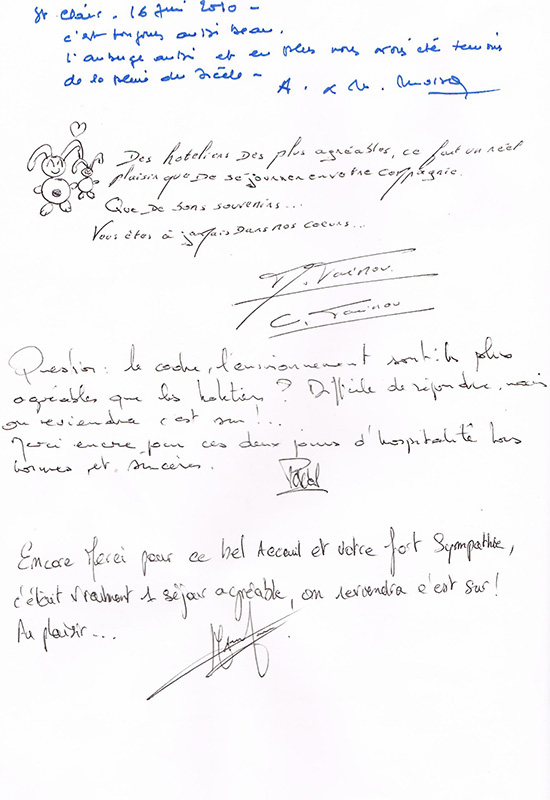 St Clair. 16 Juin 2010 -
c'est toujours aussi beau.
l'auberge aussi et en plus nous avons été temoins
de la pluie du siècle -
A. & M.
Des hoteliers des plus agréables, ce fut un réel
plaisir que de sejourner en votre compagnie.
Que de bons souvenirs...
Vous êtes à jamais dans nos coeurs...
Question : le cadre, l'environnement sont-ils plus
agréables que les hoteliers ? Difficile de répondre, mais
on reviendra c'est sur !...
Merci encore pour ces deux jours d'hospitalité hors
normes et sincères.
Encore Merci pour ce bel Acceuil et votre fort Sympathie,
c'était vraiment 1 séjour agréable, on reviendra c'est sur!
Au plaisir...